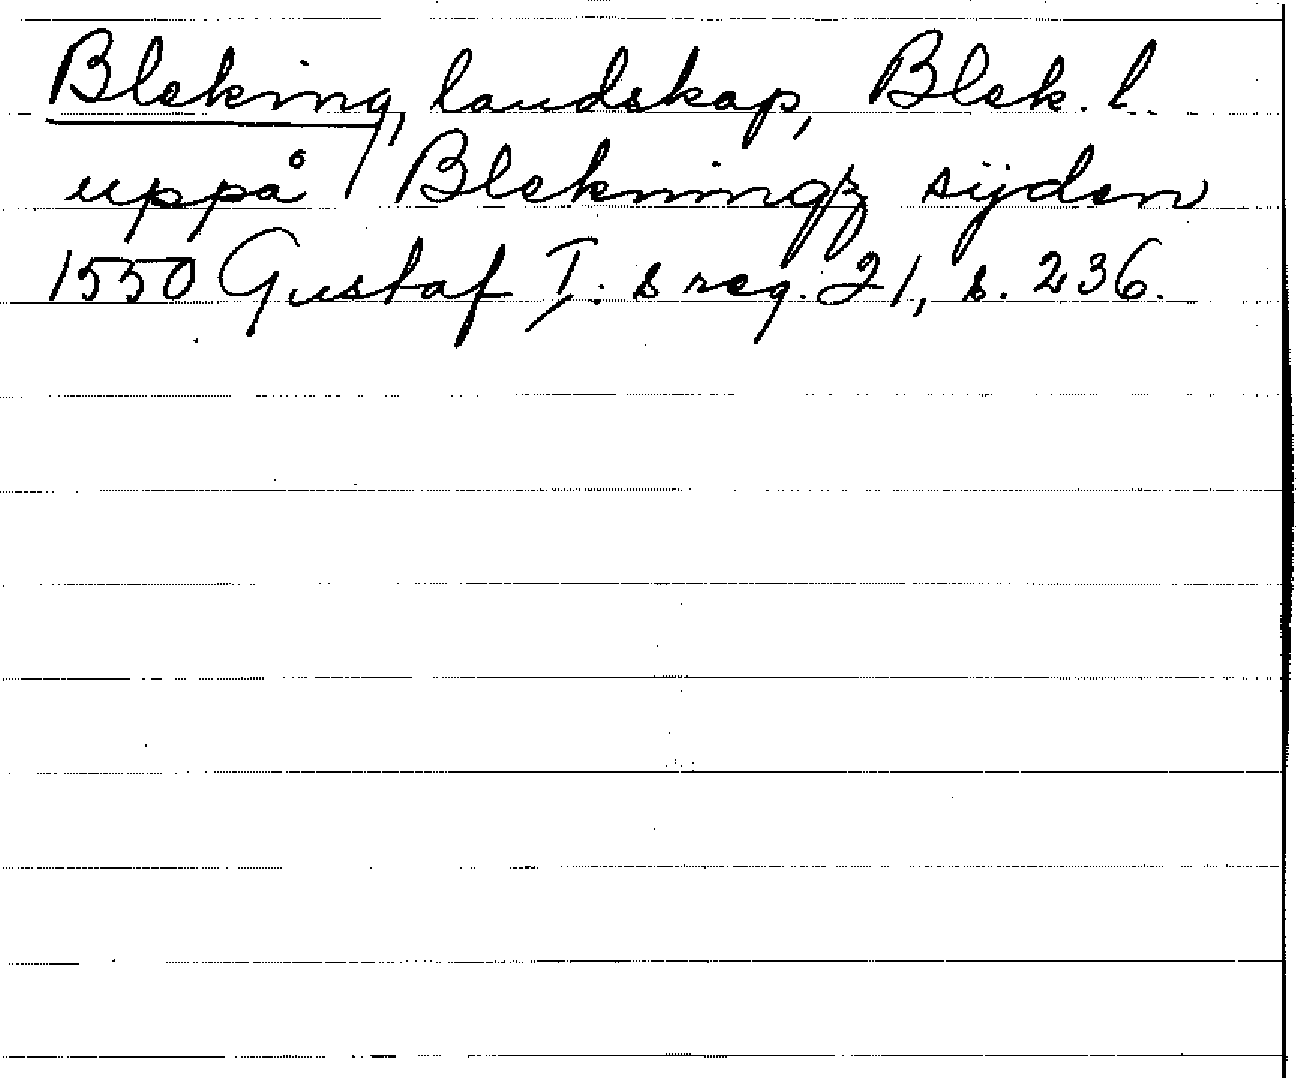 Bleking, landskap, Blek. l.
uppå Blekningz sijden
1550 Gustaf I:s reg. 21, s. 236.